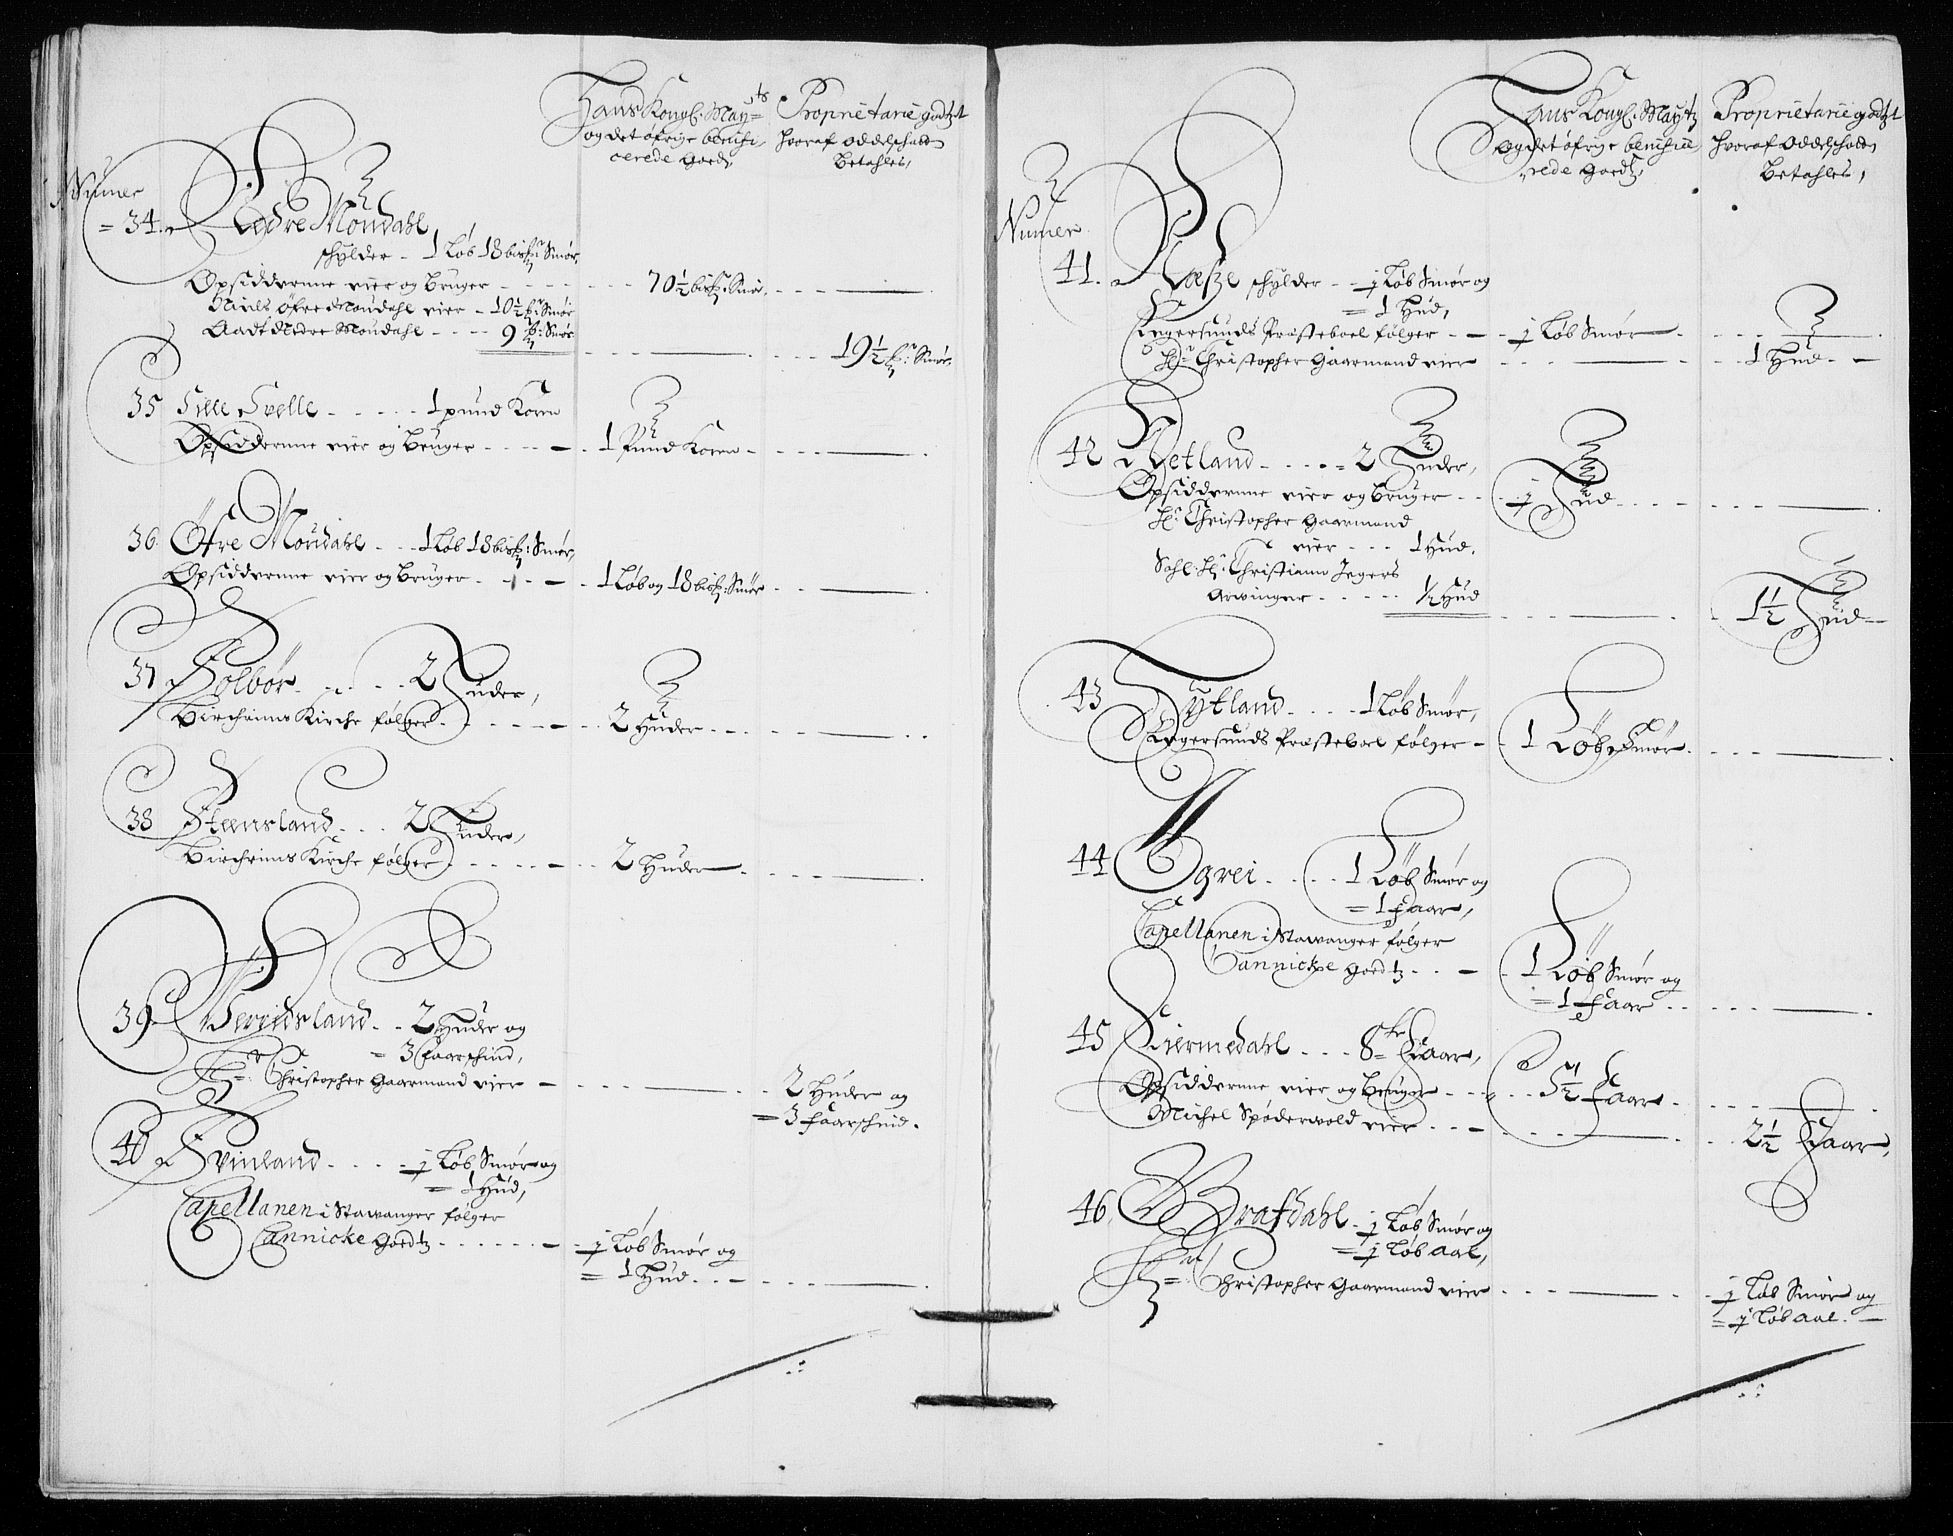 Hans Kongl: Mayts
og det öfrige benefi-
cerede Goeds,
Proprietarie godtzet
hvoraf oddelschatt
Betahles,
Numer
= 34. Nedre Möndahl
schylder - 1 Løb 18 bismr: Smør,
Opsidderenne eier og Bruger - - - - 70½ bismr: Smør. - - - -
Niels Öfre Möndahl eier - 10½ br: Smør
Aadt Nedre Möndahl - - - - 9 br: Smør.
19½ br: Smør.
35 Lille Svelle - - - - - 1 pund Korn
Opsidderenne eier og Bruger - - - - 1 Pund Korn - - - -
36. Öfre Möndahl - - - 1 Løb 18 bismr: Smør,
Opsidderenne eier og Bruger - - - - 1 Løb og 18 bismr: Smør - - -
37 Holbör - - - - 2 Huder,
Bircheims Kirche følger - - - - - 2 Huder - - - -
38 Steensland - - - 2 Huder,
Bircheims Kirche følger - - - - 2 Huder - - - -
39. Versidsland - - 2 Huder og
= 3 faarschind,
Hr: Christopher Gaarmand eier - - - - 2 Huder og
= 3 faarschind.
40 Svinland - - - - ½ Løb Smør og
= 1 Hud,
Capellanen i Stawanger følger
Cannicke Goedtz - - - - - - ½ Løb Smør og
= 1 Hud - - -
Hans Kongl: Maytz
og det öfrige beneficie
rede Goedtz,
Proprietarie godtzet
hvoraf oddelschatt
Betahles,
Numer
41. Næsze schylder - - ½ Løb Smør og
= 1 Hud,
Eegersunds Præsteboel følger - - - ½ Løb Smør - - - -
Hr: Christopher Gaarmand eier - - - 1 Hud - -
42 Netland - - - - - 2 Huder,
Opsidderenne eier og Bruger - - - ½ Hud - - - -
Hr: Christopher Gaarmand
eier - - - 1 Hud.
Sahl: Hr: Christiann Jegers
Arwinger - - - - - ½ Hud
1½ Hud -
43 Tytland - - - - 1 Løb Smør,
Eegersunds Præsteboel følger - - 1 Løb Smør. - - -
44 Ogrei - - - - 1 Løb Smør og
= 1 Faar,
Capellanen i Stawanger følger
Cannicke Goedtz - - - - 1 Løb Smør og
= 1 Faar - - -
45 Liermedahl - - - 8 Faar,
Opsidderenne eier og Bruger - - - - 5½ Faar - - -
Michel Spøderwold eier - - - - 2½ Faar,
46. Brafdahl - ½ Løb Smør og
= ½ Løb Aal,
Hr: Christopher Gaarmand eier - - - ½ Løb Smør og
= ½ Løb Aal. -